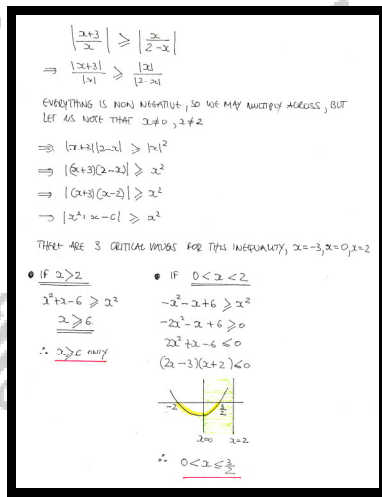 |x+3/x| ⩾ |x/2-x|
⇒ |x+3|/|x| ⩾ |x|/|2-x|
EVERYTHING IS NON NEGATIVE, SO WE MAY MULTIPLY ACROSS, BUT
LET US NOTE THAT x≠0, x≠2
⇒ |x+3||2-x| ⩾ |x|²
⇒ |(x+3)(2-x)| ⩾ x²
⇒ |(x+3)(x-2)| ⩾ x²
⇒ |x²+x-6| ⩾ x²
THERE ARE 3 CRITICAL VALUES FOR THIS INEQUALITY, x=-3, x=0, x=2
• IF x>2
x²+x-6 ⩾ x²
x⩾6
∴ x⩾6 ONLY
• IF 0<x<2
-x²-x+6 ⩾ x²
-2x²-x+6 ⩾0
2x²+x-6 ≤0
(2x-3)(x+2)≤0
-2 3/2
x=0 x=2
∴ 0<x≤3/2